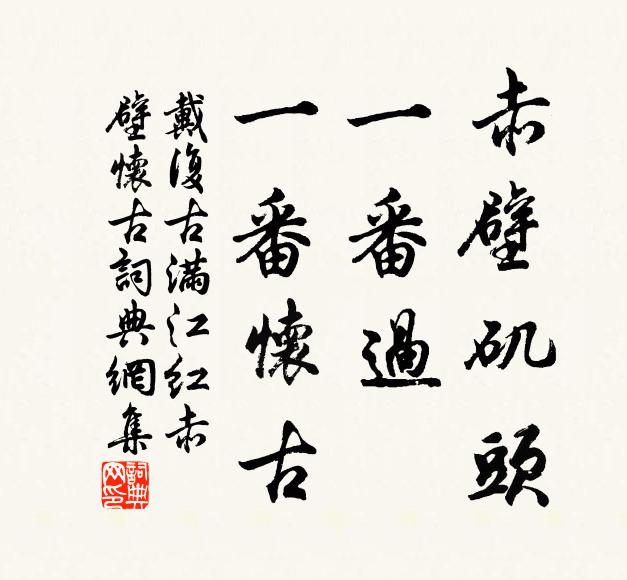 赤壁矶頭
一番過
一番懷古
戴復古滿江红赤
壁懷古詞典網集
詞典
网印